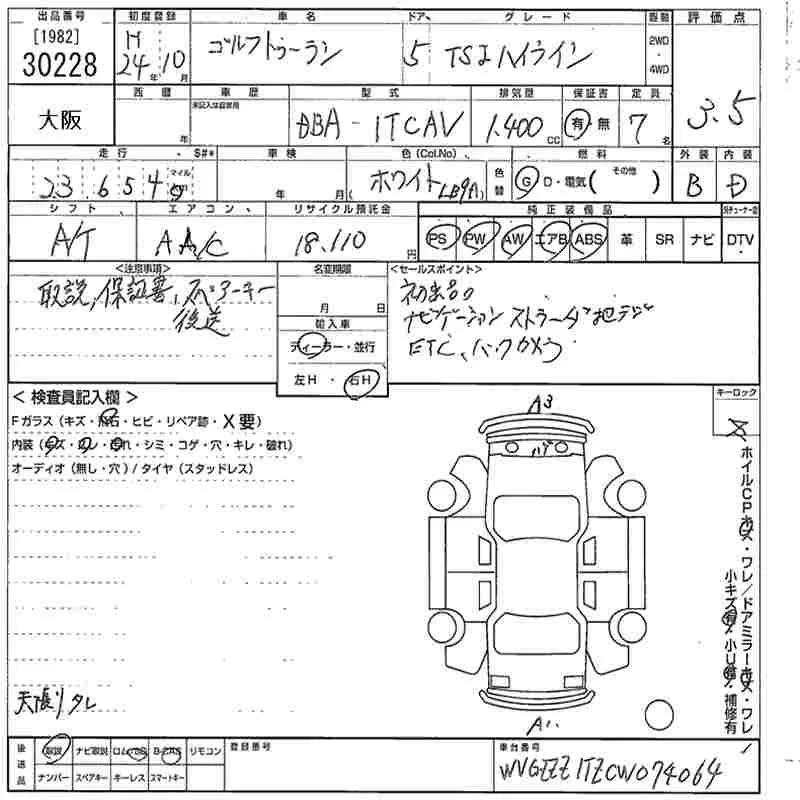 出品番号 初度登録 車名 ドア グレード 駆動 評価点
[1982] H 2WD
30228 24年 10月 ゴルフトゥーラン 5 TSIハイライン ・
4WD
3.5
西暦 車歴 型式 排気量 保証書 定員
未記入は自家用
大阪 年 DBA-1TCAV 1,400cc 有・無 7名
走行 S#* 車検 色(Col.No) 燃料 外装 内装
マイル
23,654 年 月 ホワイト(LB9A) 色替 G・D・電気( その他 ) B D
シフト エアコン リサイクル預託金 純正装備品
A/T AA/C 18,110円 PS PW AW エアB ABS 革 SR ナビ DTV
<注意事項> 名変期限 <セールスポイント>
取説,保証書,スペアーキー 初出品の
後送 月 日 ナビゲーション ストラーダ地デジ
輸入車 ETC、バックカメラ
ディーラー・並行
左H・右H
<検査員記入欄> キーロック
Fガラス(キズ・飛石・ヒビ・リペア跡・X要)
内装(キズ・ヨレ・汚れ・シミ・コゲ・穴・キレ・破れ)
オーディオ(無し・穴)/タイヤ(スタッドレス)
A3
ホイルCPキズ・ワレ/ドアミラーキズ・ワレ/
小キズ有・小U有・補修有
天張りタレ
A1
後送品 取説 ナビ取説 B-CAS リモコン 登録番号 車台番号
ナンバー スペアキー キーレス スマートキー WVGZZZ1TZCW074064